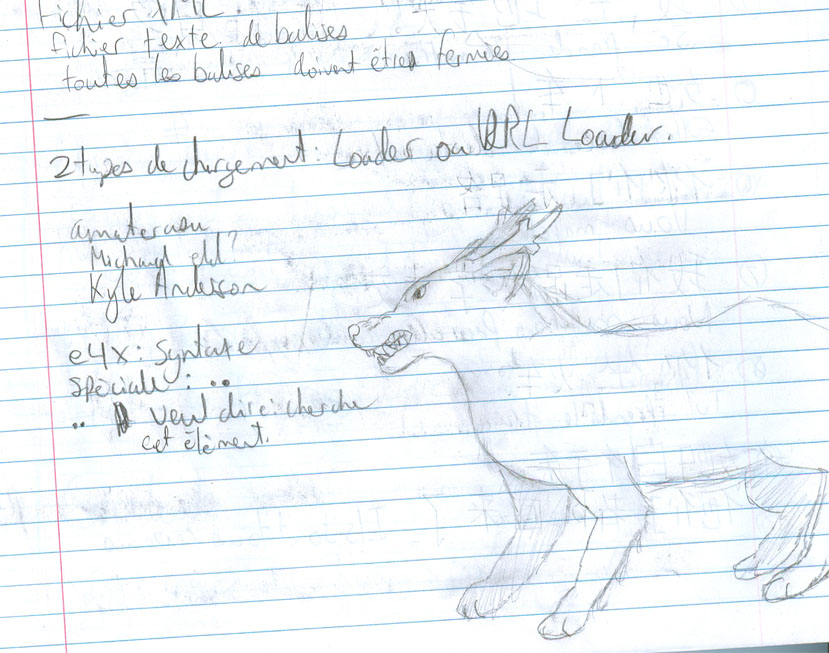 Fichier XML.
fichier texte de balises
toutes les balises doivent êtres fermées
2 types de chargement: Loader ou URL Loader.
amaterasu
Michael ?
Kyle Anderson
e4x: Syntaxe
spéciale : ..
.. veut dire: cherche
cet élément.